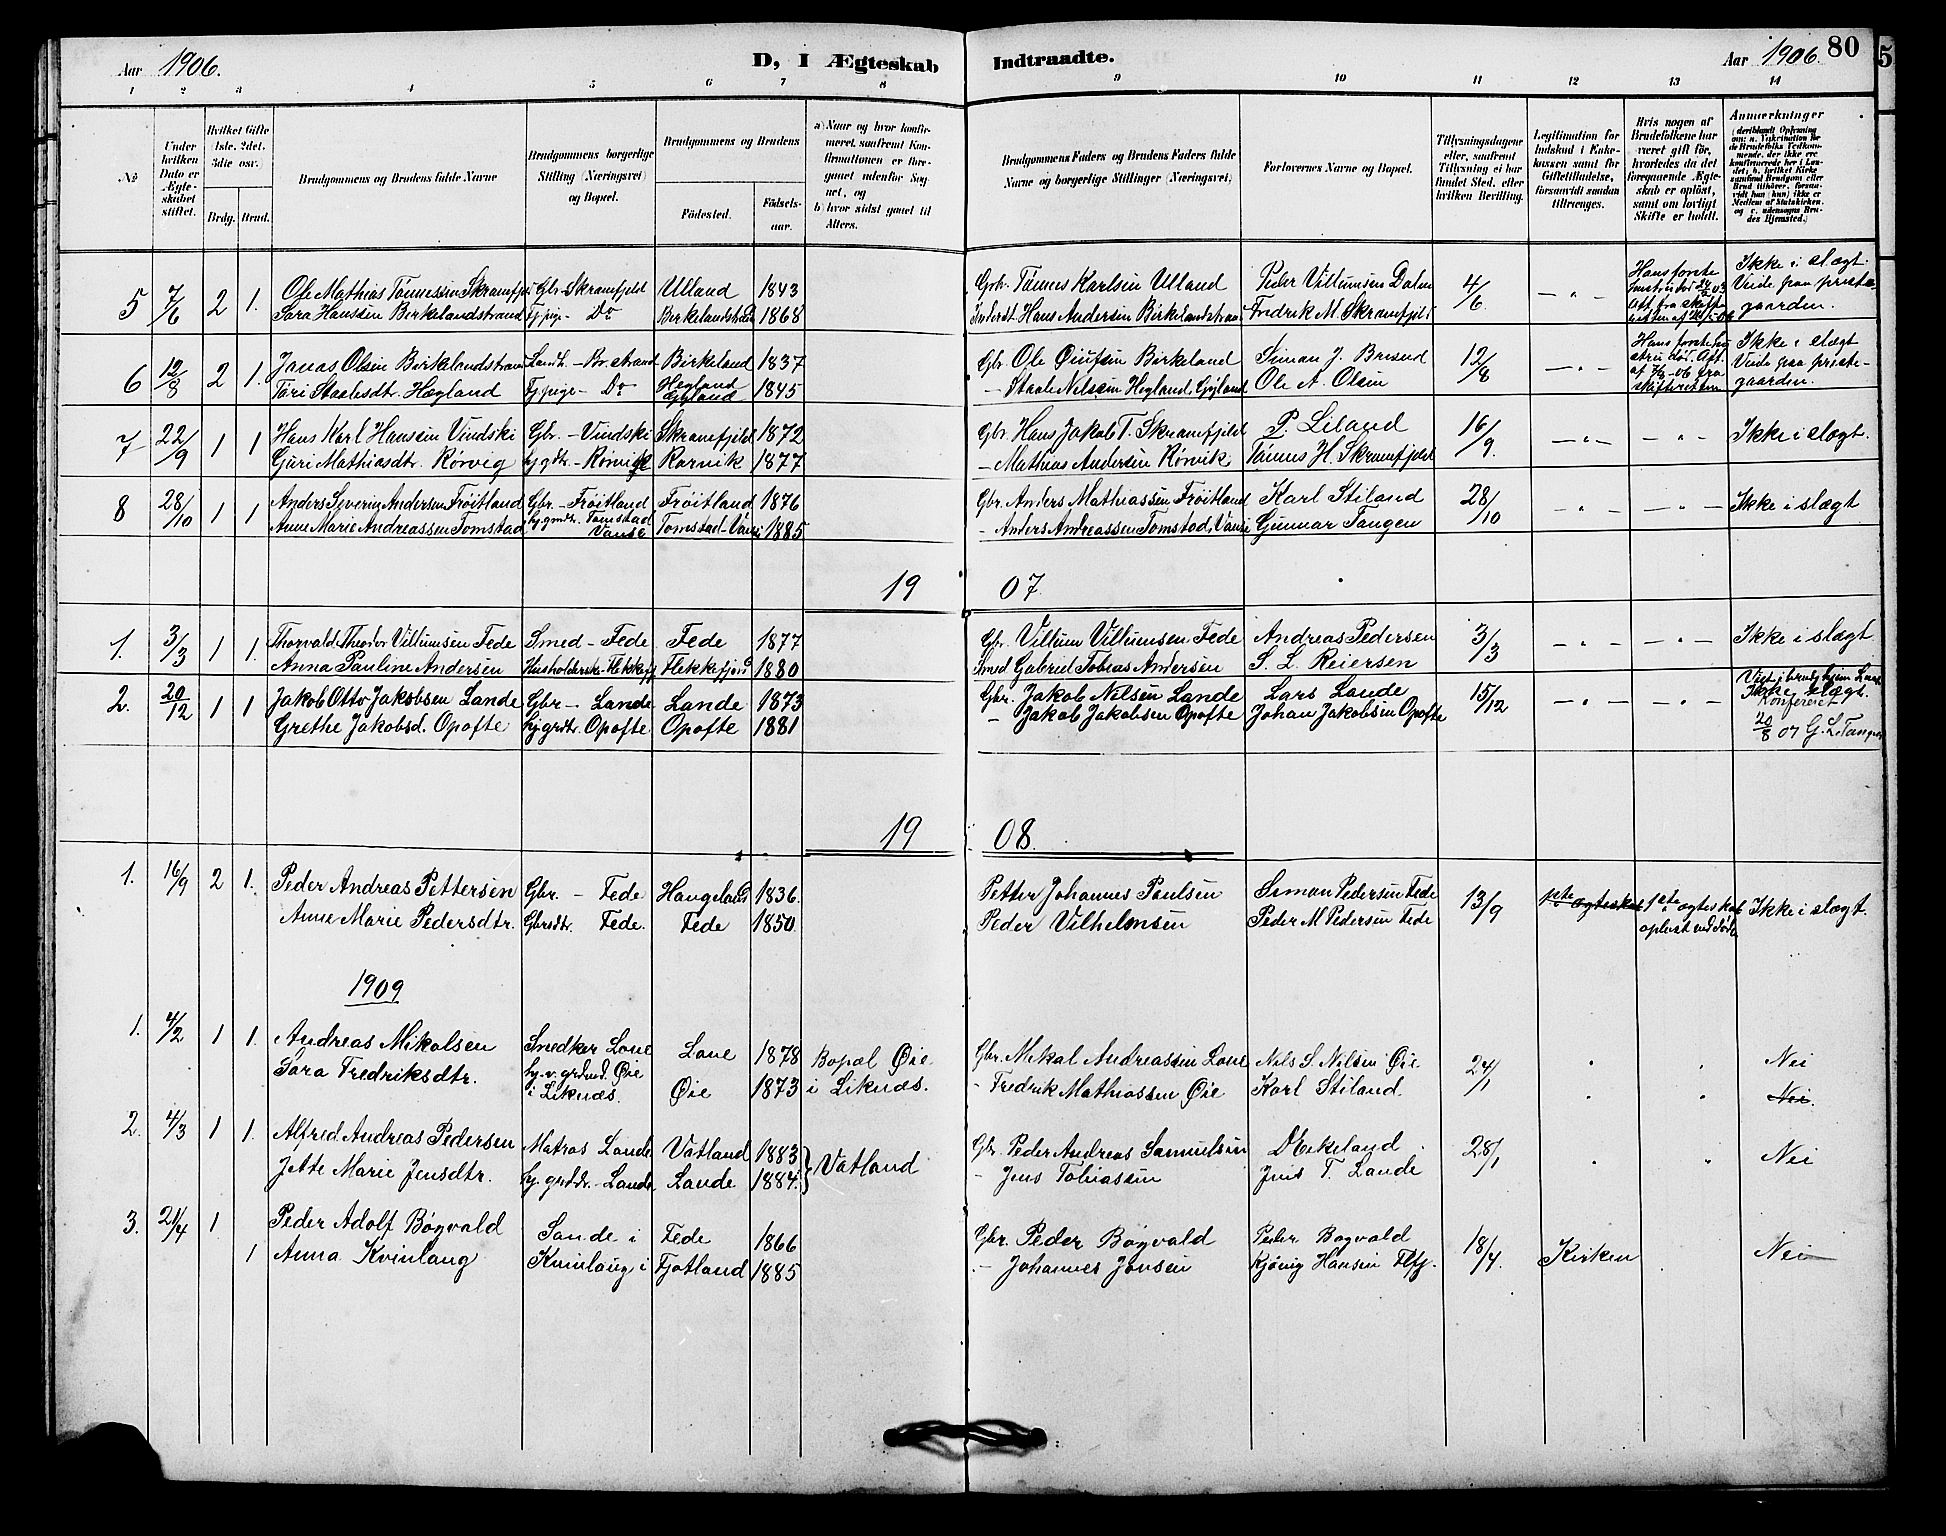 Aar 1906.
D, I Ægteskab Indtraadte.
Aar 1906. 80
1 2 3 4 5 6 7 8 9 10 11 12 13 14
No
Under hvilken Dato er Ægteskabet stiftet.
Hvilket Gifte (1ste. 2det. 3die osv.)
Brdg. Brud.
Brudgommens og Brudens fulde Navne
Brudgommens borgerlige Stilling (Næringsvei) og Bopæl.
Brudgommens og Brudens
Fødested.
Fødselsaar.
a) Naar og hvor konfirmeret, saafremt Konfirmationen er foregaaet udenfor Sognet, og
b) hvor sidst gaaet til Alters.
Brudgommens Faders og Brudens Faders fulde Navne og borgerlige Stillinger (Næringsvei)
Forlovernes Navne og Bopæl.
Tillysningsdagene eller, saafremt Tillysning ei har fundet Sted, efter hvilken Bevilling.
Legitimation for Indskud i Enkekassen samt for Giftetilladelse, forsaavidt saadan tiltrænges.
Hvis nogen af Brudefolkene har været gift før, hvorledes da det foregaaende Ægteskab er opløst, samt om lovligt Skifte er holdt.
Anmærkninger
5 7/6 2 1. Ole Mathias Tønnessen Skranefjel Gbr Skranefjeld Ulland 1843 Gbr. Tønnes Karlsen Ulland Peder Villumsen Dalen 4/6 — " — Hans første Ikke i slægt.
Sara Hansen Birkelandstrand Tj.pige - Do Birkelandstrand 1868 Inderst Hans Andersen Birkelandstrand Fredrik M. Skranefjeld Viede paa prestegaarden.
6 12/8 2 1. Jonas Olsen Birkelandstrand Landh - Br. strand Birkeland 1837 Gbr Ole Øiufsen Birkeland Simon J. Brusnd 12/8 — " — Hans første hustru død. Att. af 7/8-06 fra skifteretten Ikke i slægt
Tøri Staalesdtr. Hægland Tj.pige - Do Hegland Gyland 1845 - Staale Nilssen Hegland, Gyland Ole A. Olsen Viede paa prestegaarden.
7 22/9 1 1 Hans Karl Hansen Vindski Gbr. - Vindski Skranefjeld 1872 Gbr. Hans Jakob T. Skranefjeld P. Liland 16/9. — " — — " — Ikke i slægt.
Guri Mathiasdtr. Rørvig hj.gdtr. - Rørvigk Rørvik 1877 - Mathias Andersen Rørvik Tønnes H. Skranefjeld
8 28/10 1 1 Anders Severin Andersen Frøitland Gbr - Frøitland Frøitland 1876 Gbr. Anders Mathiassen Frøitland Karl Stiland 28/10 — " — — " — Ikke i slægt
Anne Marie Andreassen Tomstad hj.gmdtr. Tomstad Vanse Tomstad - Vanse 1885 - Anders Andreassen Tomstad, Vanse Gunnar Tangen
19 07.
1. 3/3 1 1. Thorvald Theodor Villumsen Fede Smed - Fede Fede 1877 Gbr. Villum Villumsen Fede Andreas Pedersen 3/3 — " — — " — Ikke i slægt
Anna Pauline Andersen Husholderske Flekkefj Flekkefjord 1880 Smed Gabriel Tobias Andersen S. L. Reiersen
2. 20/12 1 1 Jakob Otto Jakobsen Lande Gbr - Lande Lande 1873 Gbr. Jakob Nilsen Lande Lars Lande 15/12 — " — — " — Ikke slægt.
Grethe Jakobsd. Opofte hj.grdtr. Opofte Opofte 1881 - Jakob Jakobsen Opofte Johan Jakobsen Opofte
Konfereret
20/8 07 G. L. Tangen
19 08.
1. 16/9 2 1. Peder Andreas Pettersen Gbr. - Fede Haugeland 1836. Petter Johannes Paulsen Simon Pedersen Fede 13/9 1ste ægteskab 1ste ægteskab opløst ved død Ikke i slægt.
Anne Marie Pedersdtr. Gbrsdtr. Fede. Fede 1850. Peder Vilhelmsen Peder M Pedersen Fede
1909
1. 4/2 1 1. Andreas Mikalsen Snedker Lone Lone 1878 Bopæl Øie Gbr. Mikal Andreassen Lone Nils S. Nilsen Øie 24/1 " " Nei
Sara Fredriksdtr. hj.v. grdmd. Øie i Liknæs. Øie 1873 i Liknæs. - Fredrik Mathiassen Øie Karl Stiland. " " Nei.
2. 4/3 1 1. Alfred Andreas Pedersen Matros Lande Vatland 1883 Vatland Gbr. Peder Andreas Samuelsen D Mekeland 28/1 " " Nei
Jette Marie Jensdtr. hj. grddr. - Lande Lande 1884. - Jens Tobiassen Jens T. Lande
3. 21/4 1 Peder Adolf Bøgvald Sande i Fede 1866 Gbr. Peder Bøgvald Peder Bøgvald 18/4. Kirken Nei
1 Anna Kvinlaug Kvinlaug i Fjotland 1885 - Johannes Jonsen Kjønig Hansen Flfj.